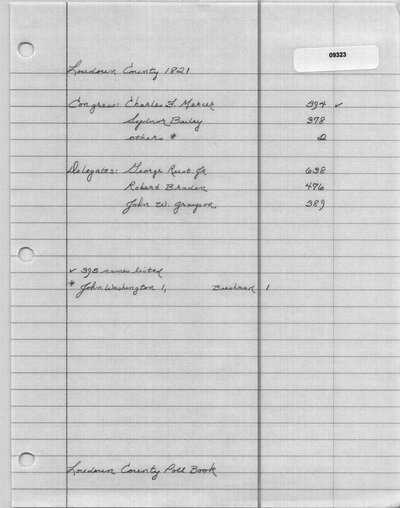 09323
Loudoun County 1821
Congress: Charles F. Mercer 394 ✓
Sydnor Bailey 378
others * 2
Delegates: George Rust Jr 638
Robert Braden 476
John W. Grayson 389
✓ 395 names listed
* John Washington 1, Bushrod 1
Loudoun County Poll Book